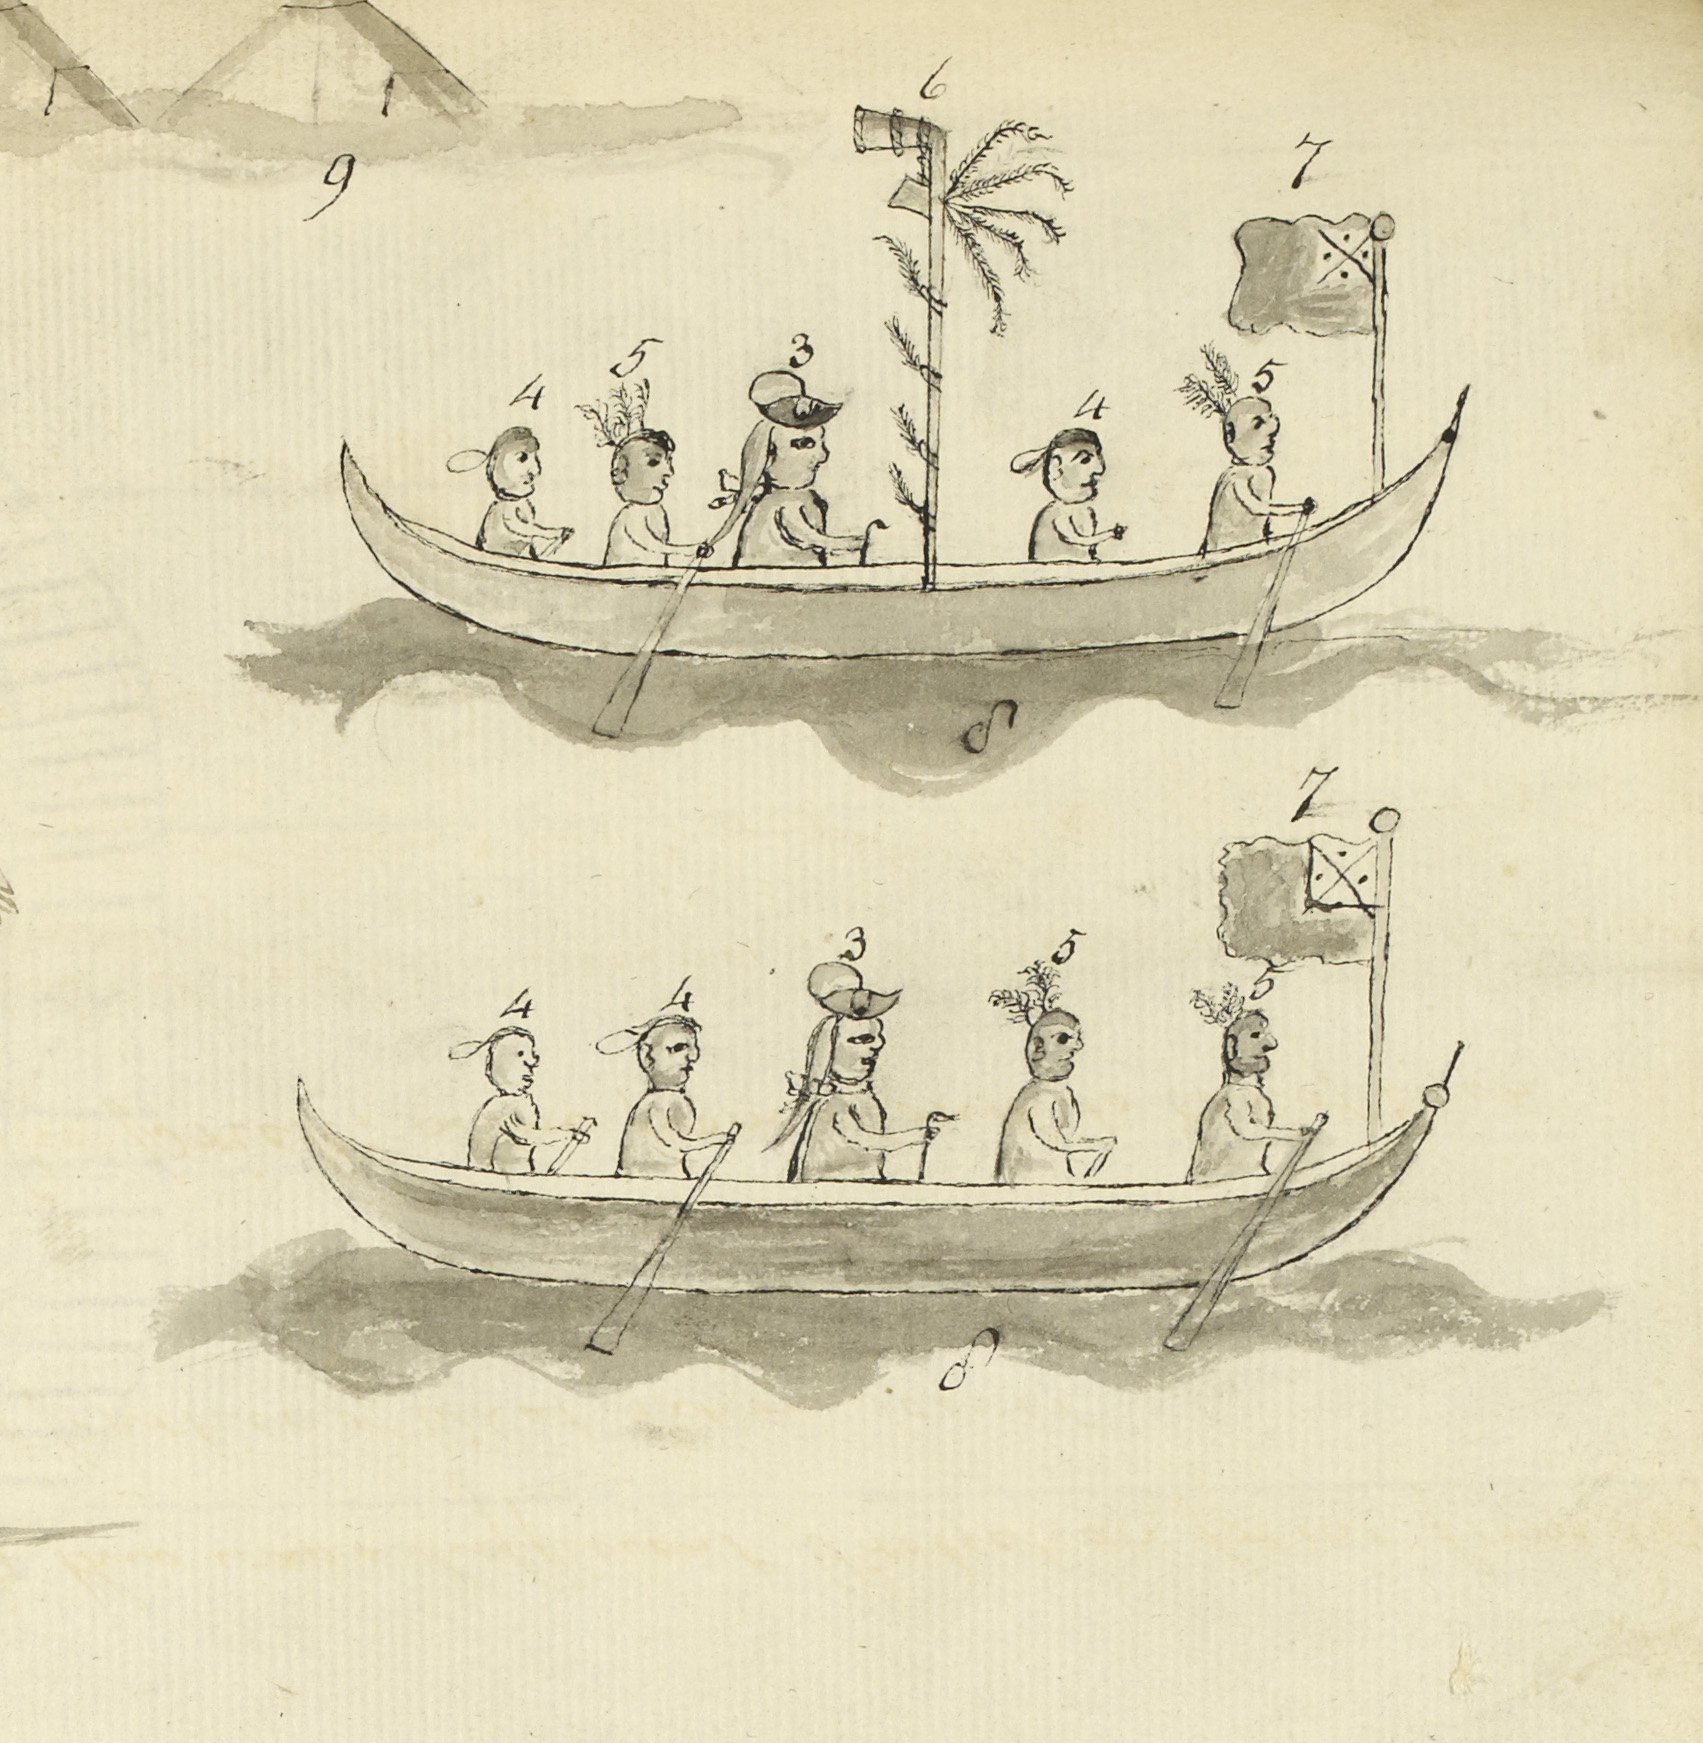 6
7
9
3
5
4
4
5
8
7
3
5
4
4
5
8